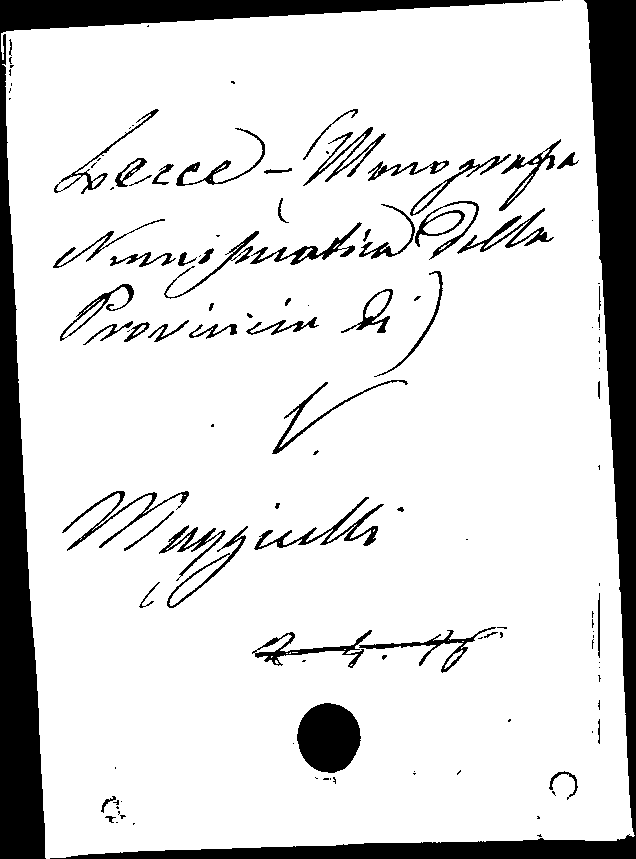 Lecce - (Monografia
Numismatica della
Provincia di)
V.
Maggiulli
2. 4. 46